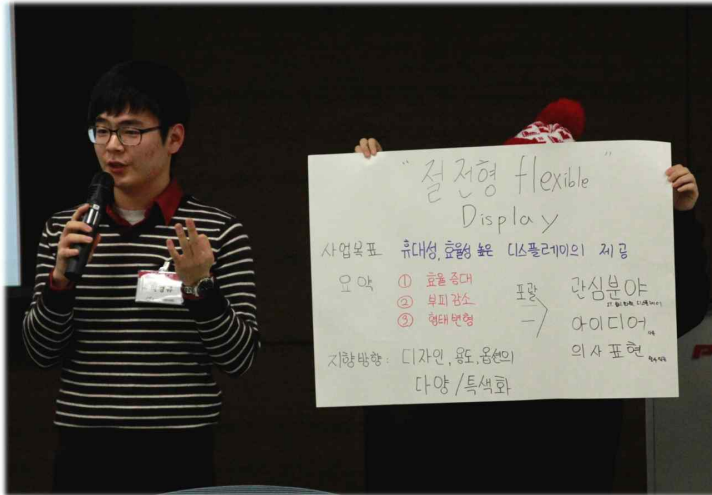 " 절전형 flexible "
Display
사업목표 휴대성, 효율성 높은 디스플레이의 제공
요약 ① 효율 증대
② 부피 감소
③ 형태 변형
포괄
관심분야
아이디어
의사표현
지향방향 : 디자인, 용도, 옵션의
다양/특색화